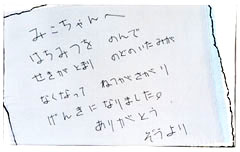 みこちゃんへ
はちみつを のんで
せきがとまり のどのいたみが
なくなって ねつがさがり
げんきになりました。
ありがとう
ぞうより